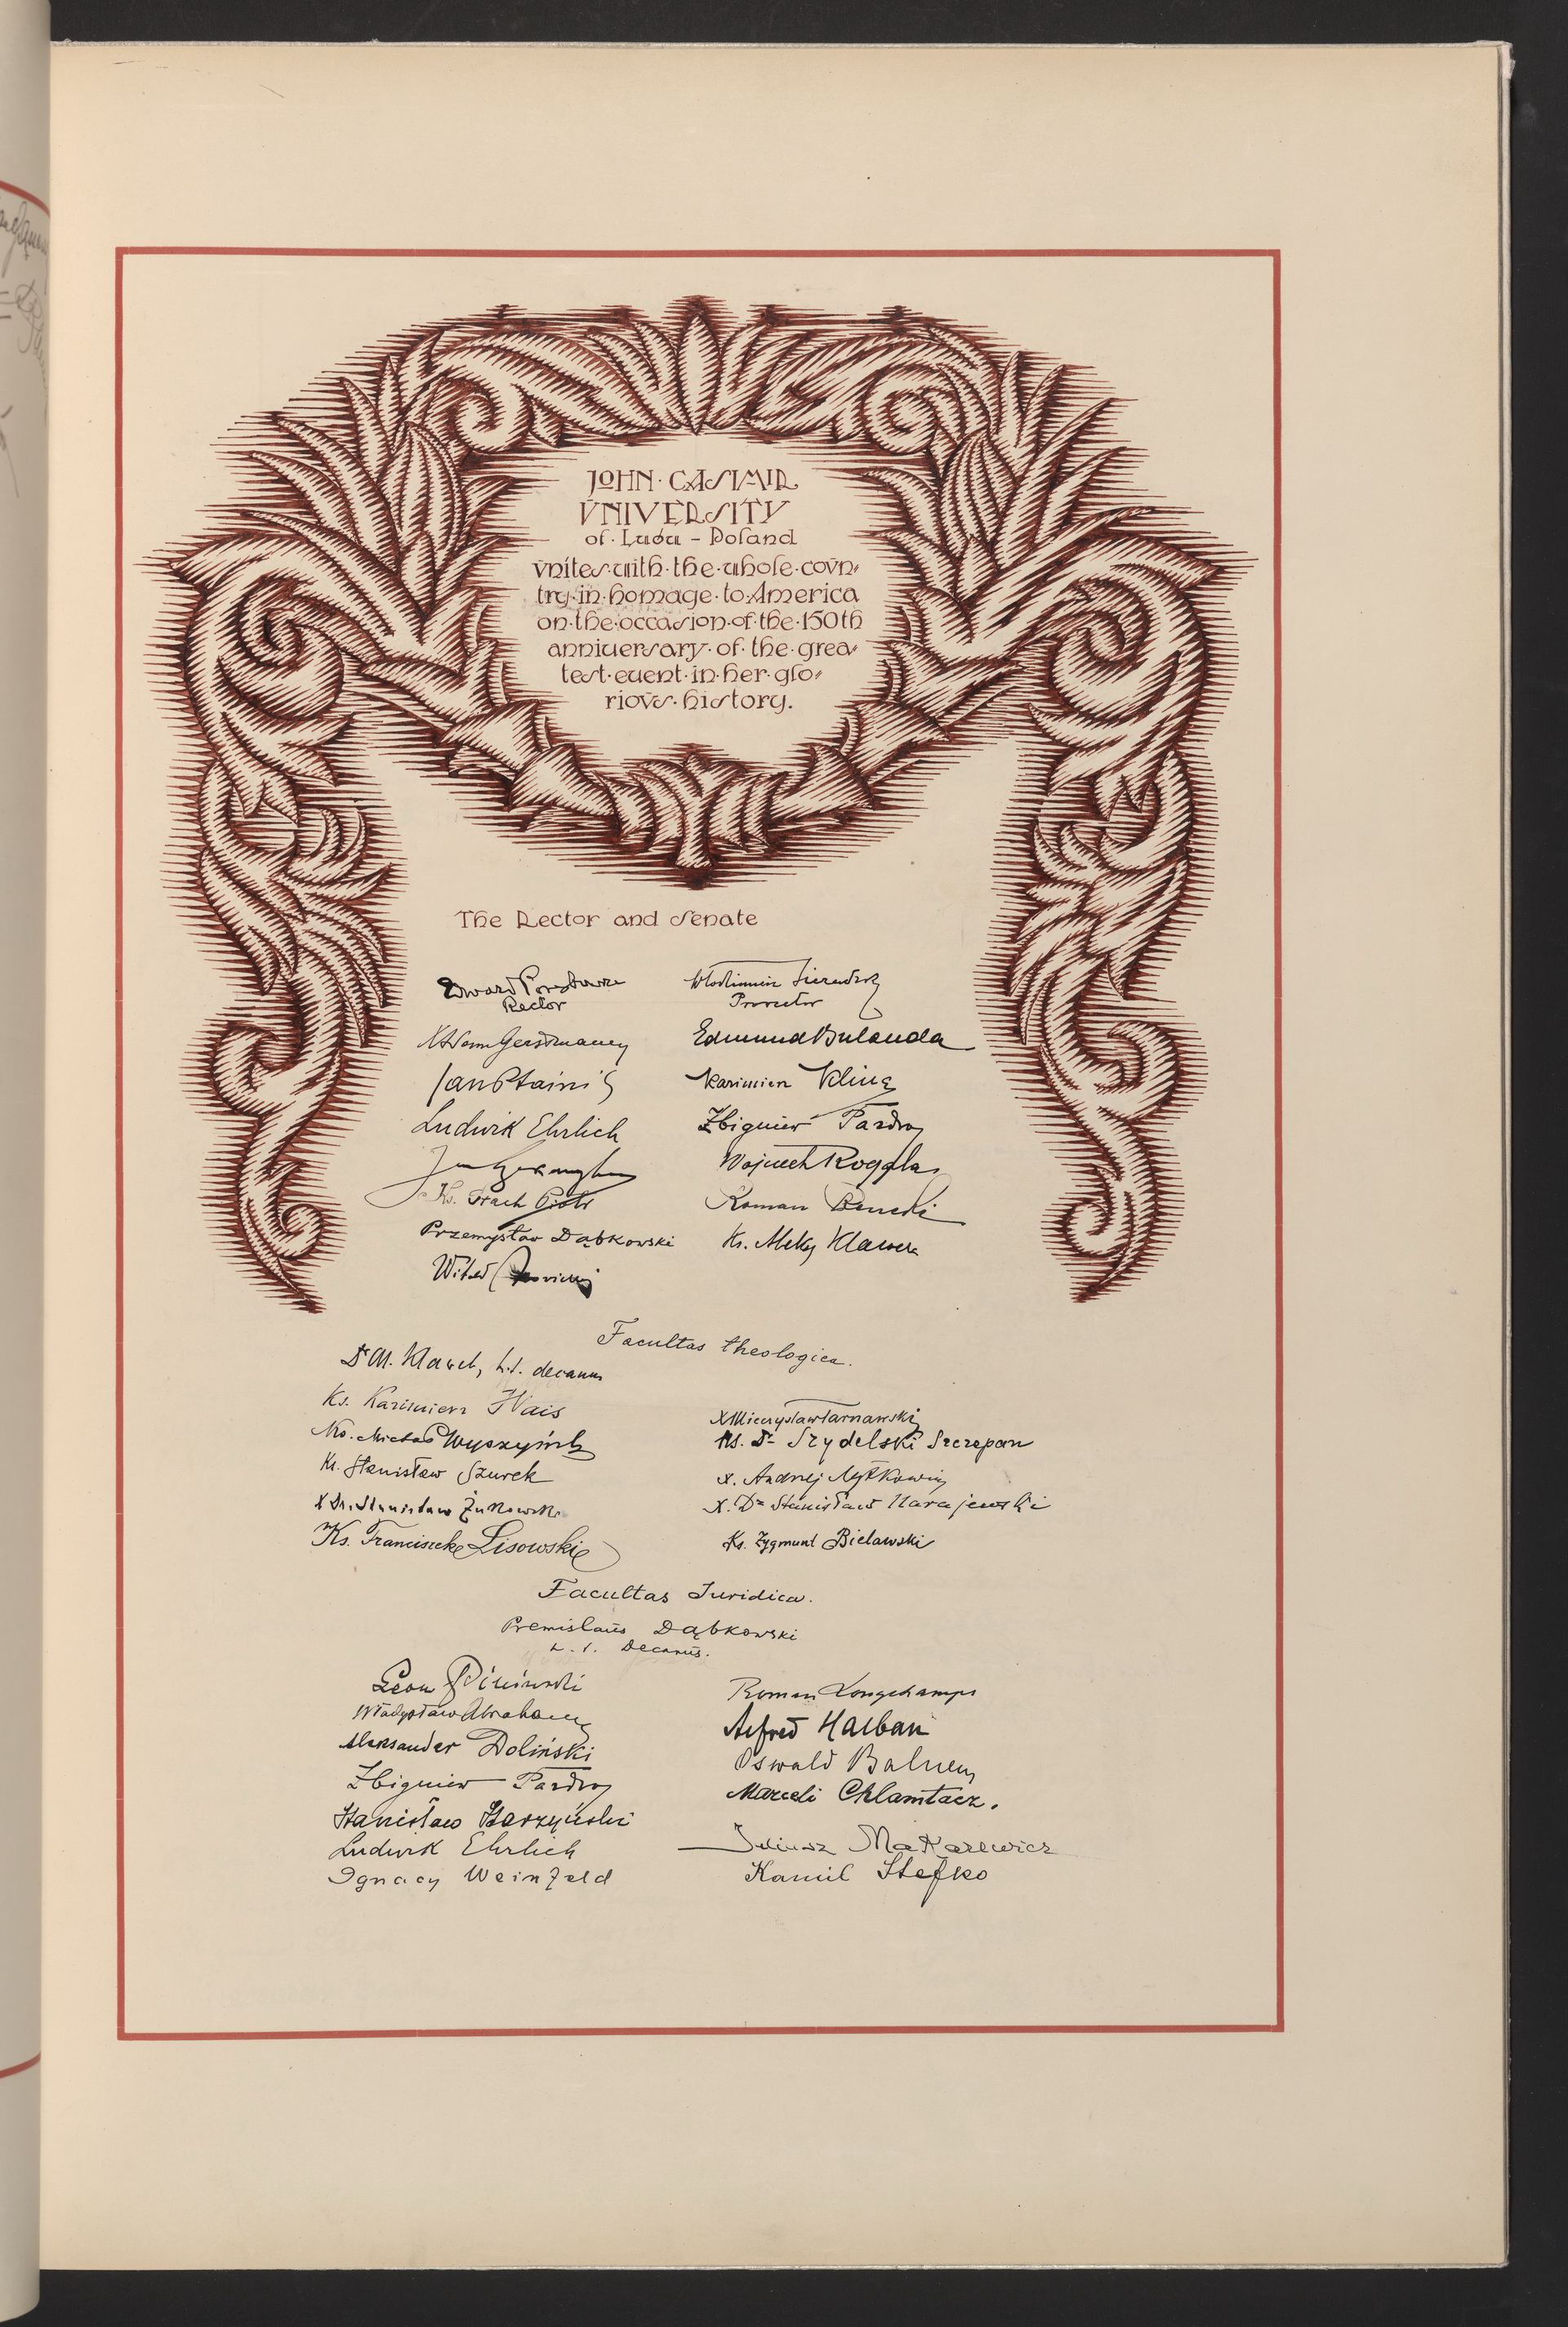 JOHN · CASIMIR
VNIVERSITY
of · Lwów - Poland
vnites · with · the · whole · covn-
try · in · homage · to · America
on · the · occasion · of · the · 150th
anniversary · of · the · grea-
test · event · in · her · glo-
riovs · history.
The Rector and Senate
Edward Porębowicz
Rector
Prorector
Edmund Bulanda
Jan Ptaśnik
Kazimierz Kling
Ludwik Ehrlich
Zbigniew Pazdro
Wojciech Rogala
Przemysław Dąbkowski
Witold
Roman
Facultas theologica.
Ks. Kazimierz Wais
Ks. Michał Wyszyński
Ks. Stanisław Szurek
X Dr. Stanisław Żukowski
Ks. Franciszek Lisowski
X Mieczysław Tarnawski
Ks. Dr Szydelski Szczepan
X. Dr Stanisław Narajewski
Ks. Zygmunt Bielawski
Facultas Iuridica.
Premislaus Dąbkowski
h. t. Decanus.
Leon Piniński
Władysław Abraham
Aleksander Doliński
Zbigniew Pazdro
Stanisław Starzyński
Ludwik Ehrlich
Ignacy Weinfeld
Roman Longchamps
Alfred Halban
Oswald Balzer
Marceli Chlamtacz.
Juliusz Makarewicz
Kamil Stefko